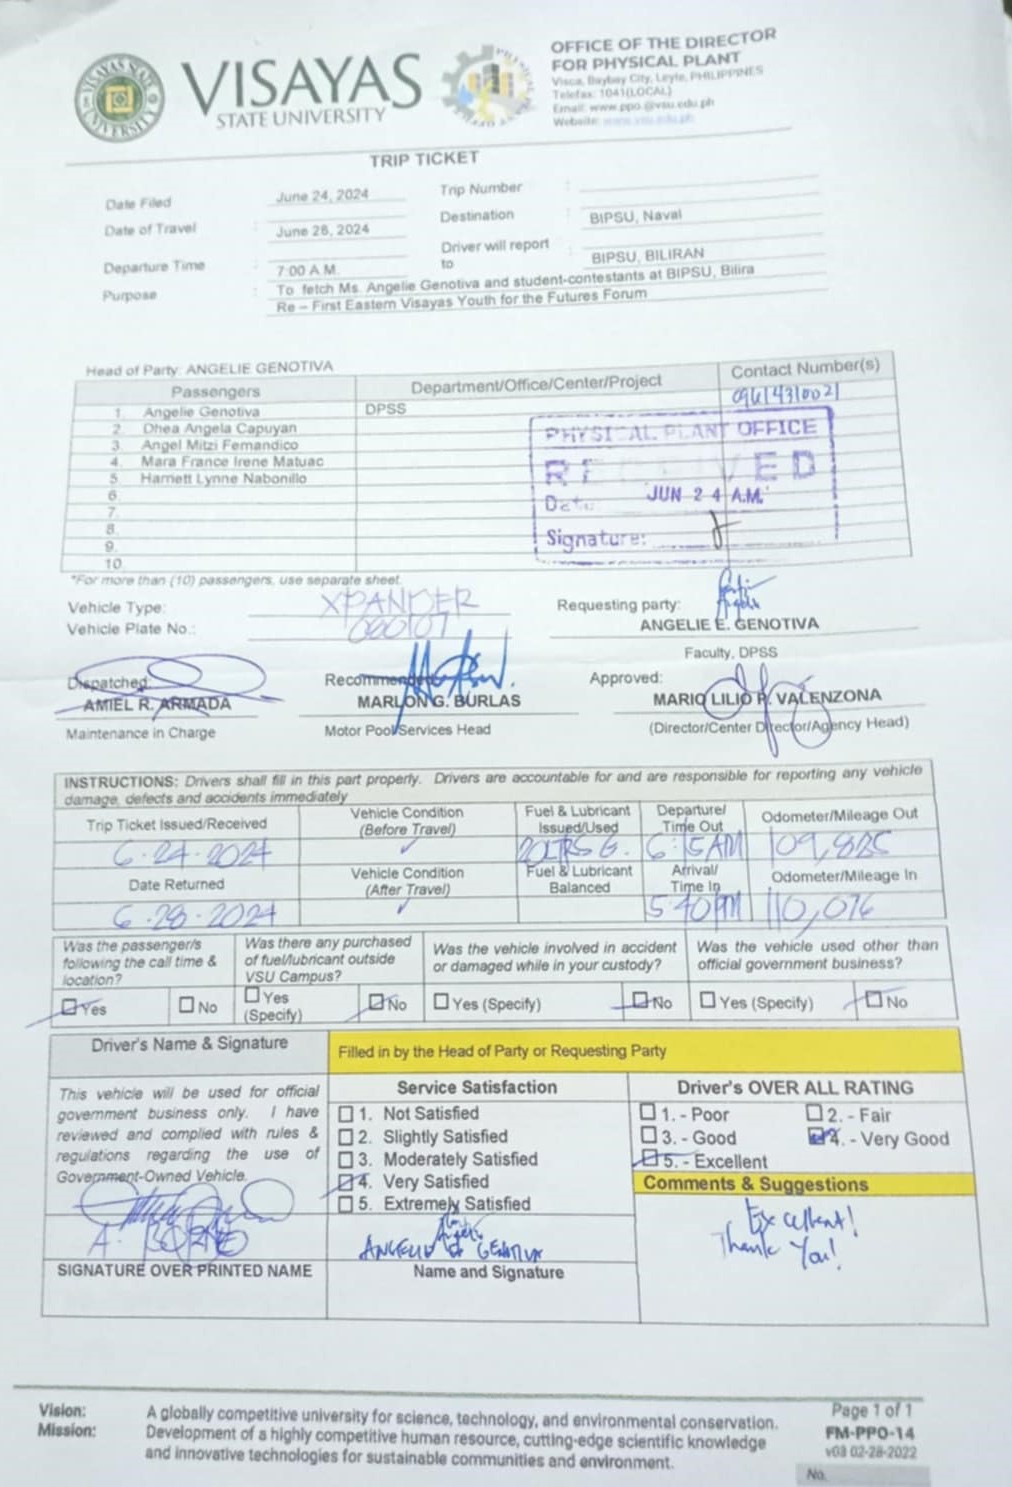 VISAYAS STATE UNIVERSITY
VISAYAS
STATE UNIVERSITY
OFFICE OF THE DIRECTOR
FOR PHYSICAL PLANT
Visca, Baybay City, Leyte, PHILIPPINES
Telefax: 1041(LOCAL)
Email: www.ppo@vsu.edu.ph
Website: www.vsu.edu.ph
TRIP TICKET
Date Filed : June 24, 2024 Trip Number :
Date of Travel : June 28, 2024 Destination : BIPSU, Naval
Departure Time : 7:00 A.M. Driver will report to : BIPSU, BILIRAN
Purpose : To fetch Ms. Angelie Genotiva and student-contestants at BIPSU, Bilira
Re – First Eastern Visayas Youth for the Futures Forum
Head of Party: ANGELIE GENOTIVA
Passengers Department/Office/Center/Project Contact Number(s)
1. Angelie Genotiva DPSS 09614310021
2. Dhea Angela Capuyan
3. Angel Mitzi Fernandico
4. Mara France Irene Matuac
5. Harriett Lynne Nabonillo
6.
7.
8.
9.
10.
PHYSICAL PLANT OFFICE
RECEIVED
Date: JUN 24 A.M.
Signature:
*For more than (10) passengers, use separate sheet.
Vehicle Type: XPANDER
Vehicle Plate No.:
Requesting party:
ANGELIE E. GENOTIVA
Faculty, DPSS
Dispatched: Recommended Approved:
AMIEL R. ARMADA MARLON G. BURLAS MARIO LILIO P. VALENZONA
Maintenance in Charge Motor Pool Services Head (Director/Center Director/Agency Head)
INSTRUCTIONS: Drivers shall fill in this part properly. Drivers are accountable for and are responsible for reporting any vehicle
damage, defects and accidents immediately
Trip Ticket Issued/Received Vehicle Condition (Before Travel) Fuel & Lubricant Issued/Used Departure/ Time Out Odometer/Mileage Out
6-24-2024 20LTRS G. 6:15AM 109,825
Date Returned Vehicle Condition (After Travel) Fuel & Lubricant Balanced Arrival/ Time In Odometer/Mileage In
6-28-2024 5:40PM 110,076
Was the passenger/s following the call time & location? Was there any purchased of fuel/lubricant outside VSU Campus? Was the vehicle involved in accident or damaged while in your custody? Was the vehicle used other than official government business?
Yes No Yes (Specify) No Yes (Specify) No Yes (Specify) No
Driver's Name & Signature Filled in by the Head of Party or Requesting Party
This vehicle will be used for official
government business only. I have
reviewed and complied with rules &
regulations regarding the use of
Government-Owned Vehicle.
SIGNATURE OVER PRINTED NAME
Service Satisfaction
1. Not Satisfied
2. Slightly Satisfied
3. Moderately Satisfied
4. Very Satisfied
5. Extremely Satisfied
Name and Signature
Driver's OVER ALL RATING
1. - Poor 2. - Fair
3. - Good 4. - Very Good
5. - Excellent
Comments & Suggestions
Excellent!
Thank You!
Vision: A globally competitive university for science, technology, and environmental conservation.
Mission: Development of a highly competitive human resource, cutting-edge scientific knowledge
and innovative technologies for sustainable communities and environment.
Page 1 of 1
FM-PPO-14
v03 02-28-2022
No.